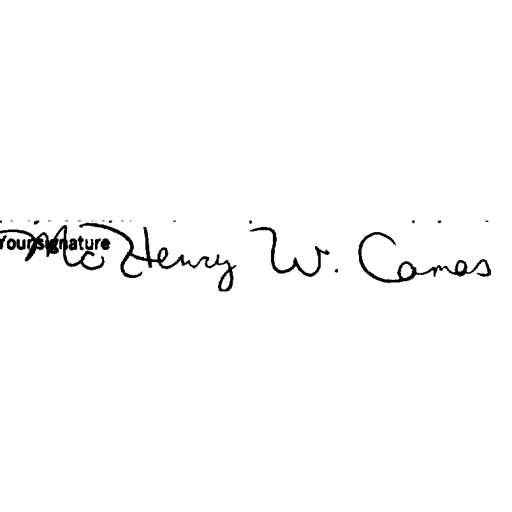 Your signature
McHenry W. Camas